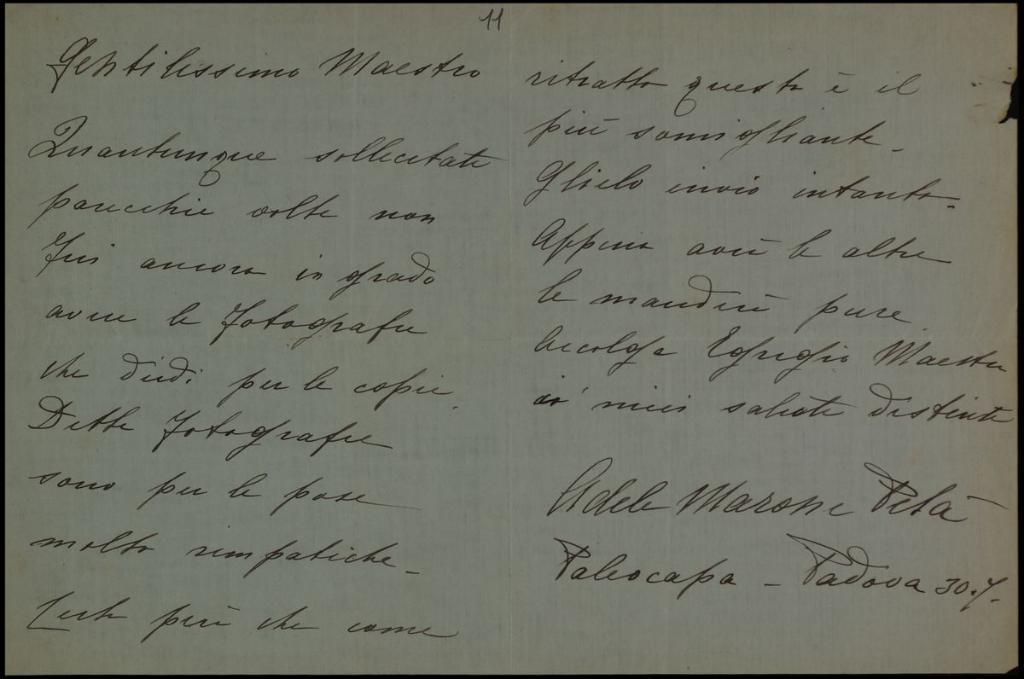 11
Gentilissimo Maestro
Quantunque sollecitate
parecchie volte non
fui ancora in grado
avere le fotografie
che diedi per le copie.
Dette fotografie
sono per le pose
molto simpatiche_
Certo più che come
ritratto questo è il
più somigliante_
Glielo invio intanto_
Appena avrò le altre
le manderò pure
Accolga Egregio Maestro
i miei saluti distinti
Adele Marone Pelà
Paleocapa - Padova 30.7-